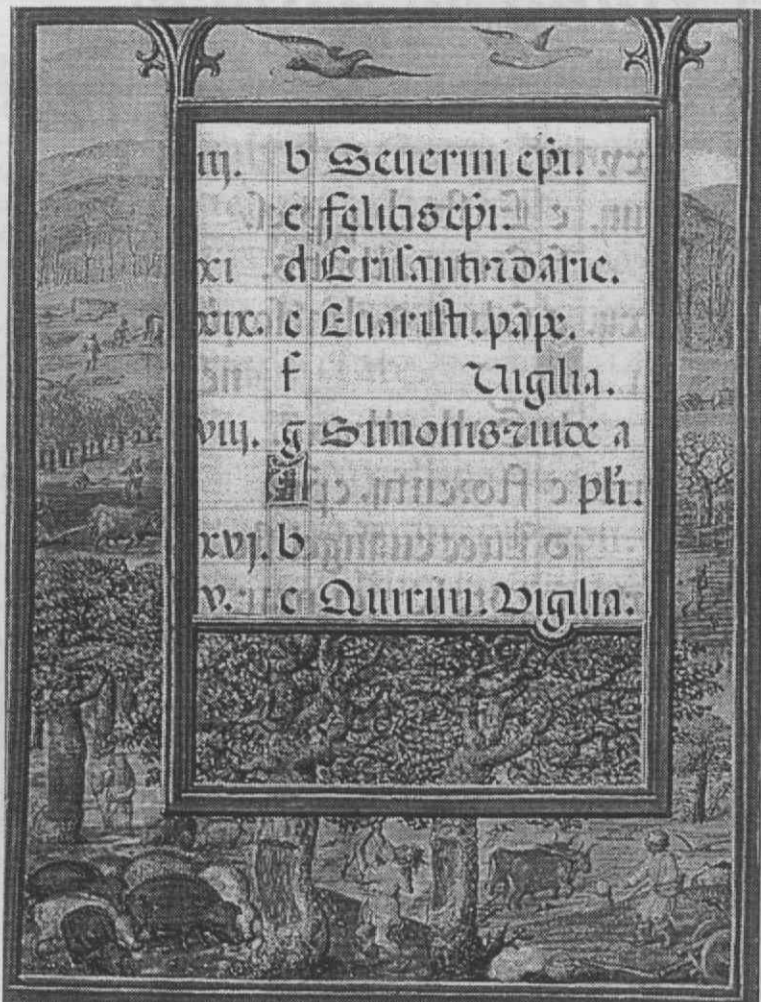 iij. b Seuerini ep̄i.
c felicis ep̄i.
xi d Crisanti ⁊ darie.
xix. e Euaristi. pape.
f Uigilia.
viij. g Simonis ⁊ iude a
A pl̄i.
xvj. b
v. c Quirini. Vigilia.